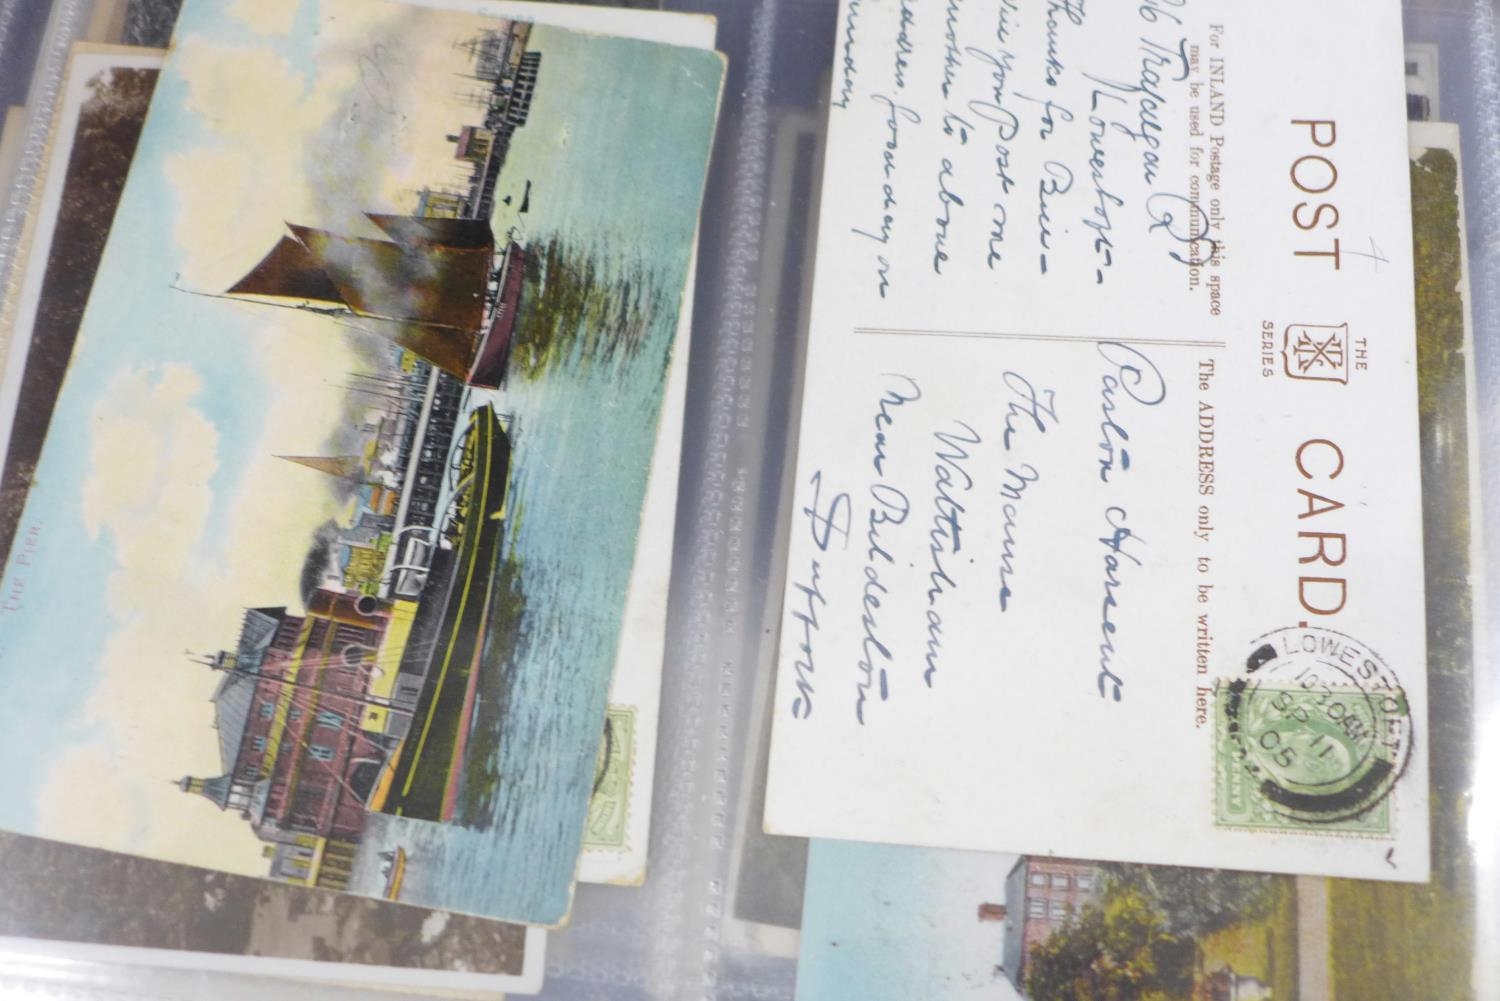 POST CARD.
THE
SERIES
For INLAND Postage only this space
may be used for communication.
The ADDRESS only to be written here.
Lowestoft -
Thanks for
your Post one
another to above
address. Good day on
Sunday
Paston Harsent
The Manse
Wattisham
Near Bildeston
Suffolk
LOWESTOFT
10 30 AM
SP 11
05
PENNY
THE PIER.